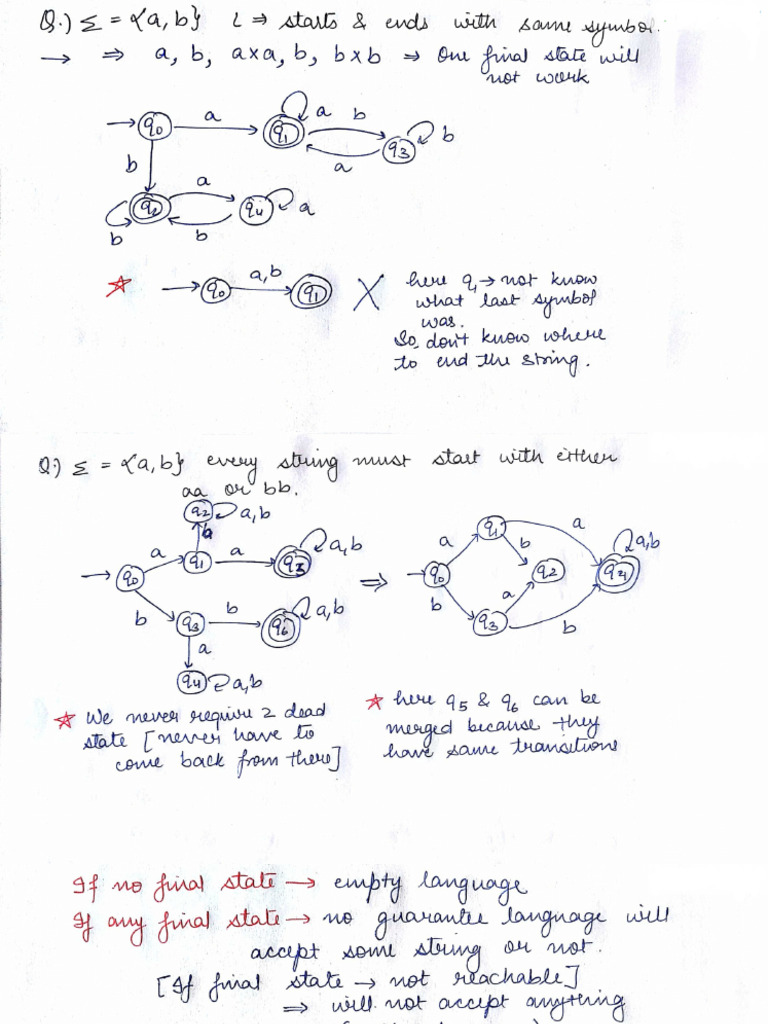 Q.) Σ = {a, b} L ⇒ starts & ends with same symbol.
→ ⇒ a, b, axa, b, bxb ⇒ One final state will
not work
q0 a q1 a b q3 b
a
b
q2 a q4 a
b b
★ q0 a,b q1 X here q1 → not know
what last symbol
was.
So, don't know where
to end the string.
Q:) Σ = {a, b} every string must start with either
aa or bb.
q2 a,b
b
q0 a q1 a a,b
b q3 b q6 a,b
a
q4 a,b
⇒ q0 a q1 a
b q2 a,b
b q3 a b
★ We never require 2 dead
state [never have to
come back from there]
★ here q5 & q6 can be
merged because they
have same transitions
If no final state → empty language
If any final state → no guarantee language will
accept some string or not.
[If final state → not reachable]
⇒ will not accept anything